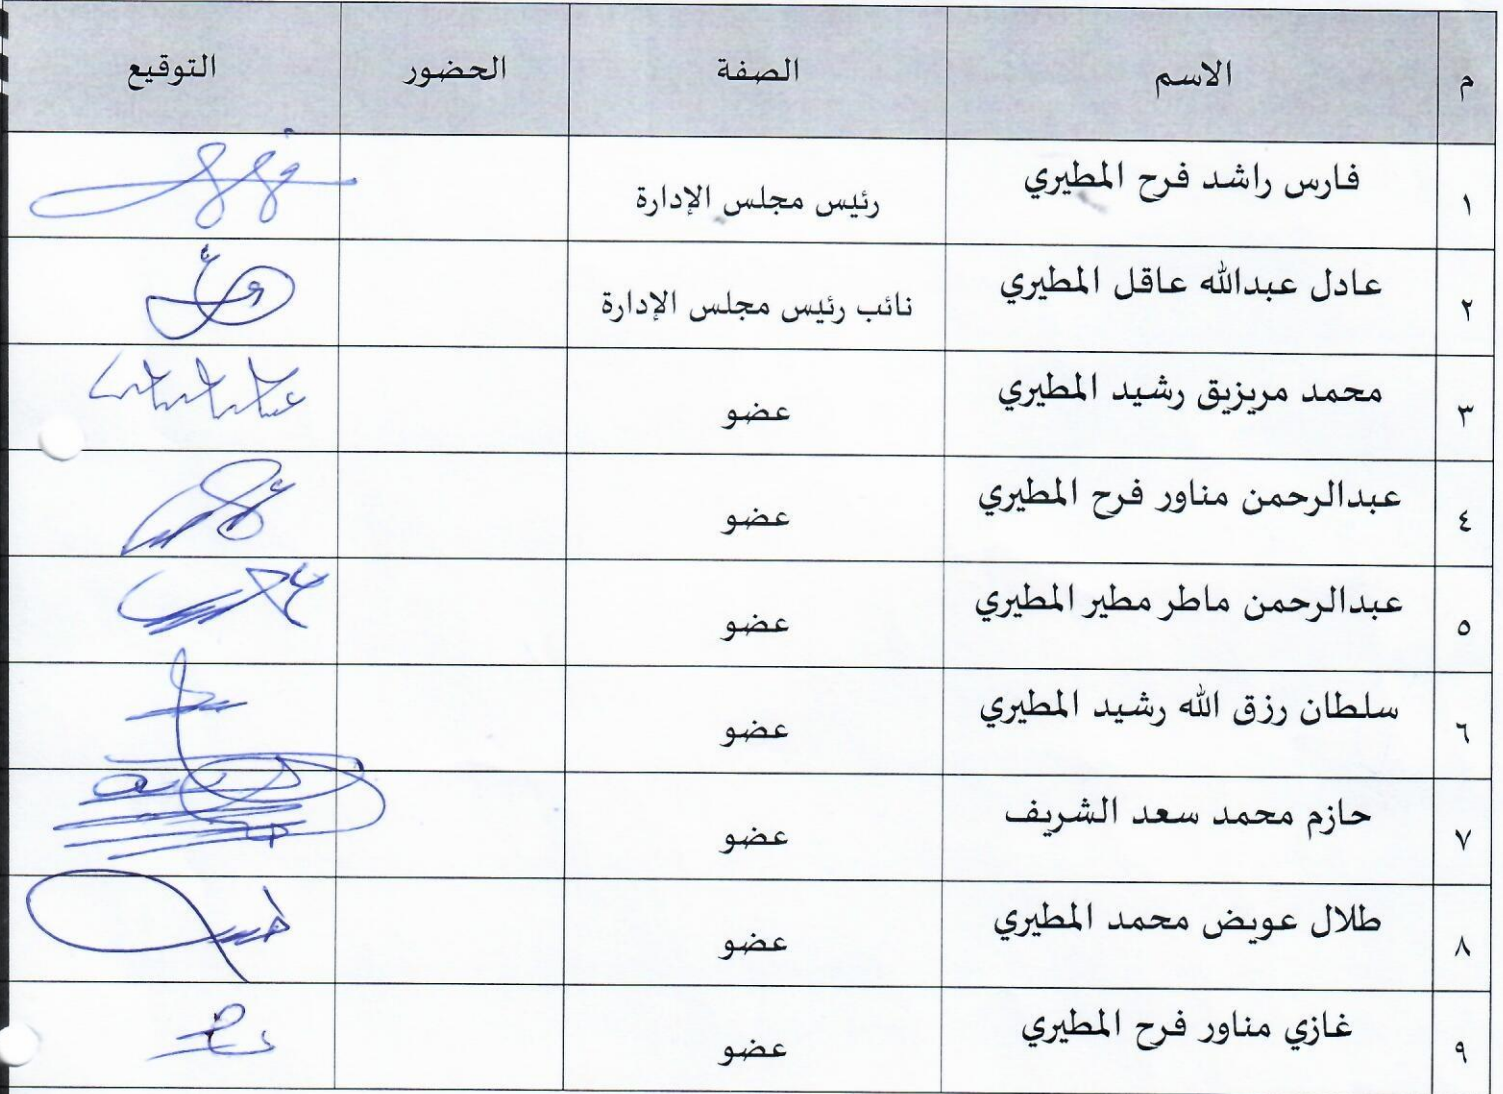 م الاسم الصفة الحضور التوقيع
١ فارس راشد فرح المطيري رئيس مجلس الإدارة
٢ عادل عبدالله عاقل المطيري نائب رئيس مجلس الإدارة
٣ محمد مريزيق رشيد المطيري عضو
٤ عبدالرحمن مناور فرح المطيري عضو
٥ عبدالرحمن ماطر مطير المطيري عضو
٦ سلطان رزق الله رشيد المطيري عضو
٧ حازم محمد سعد الشريف عضو
٨ طلال عويض محمد المطيري عضو
٩ غازي مناور فرح المطيري عضو